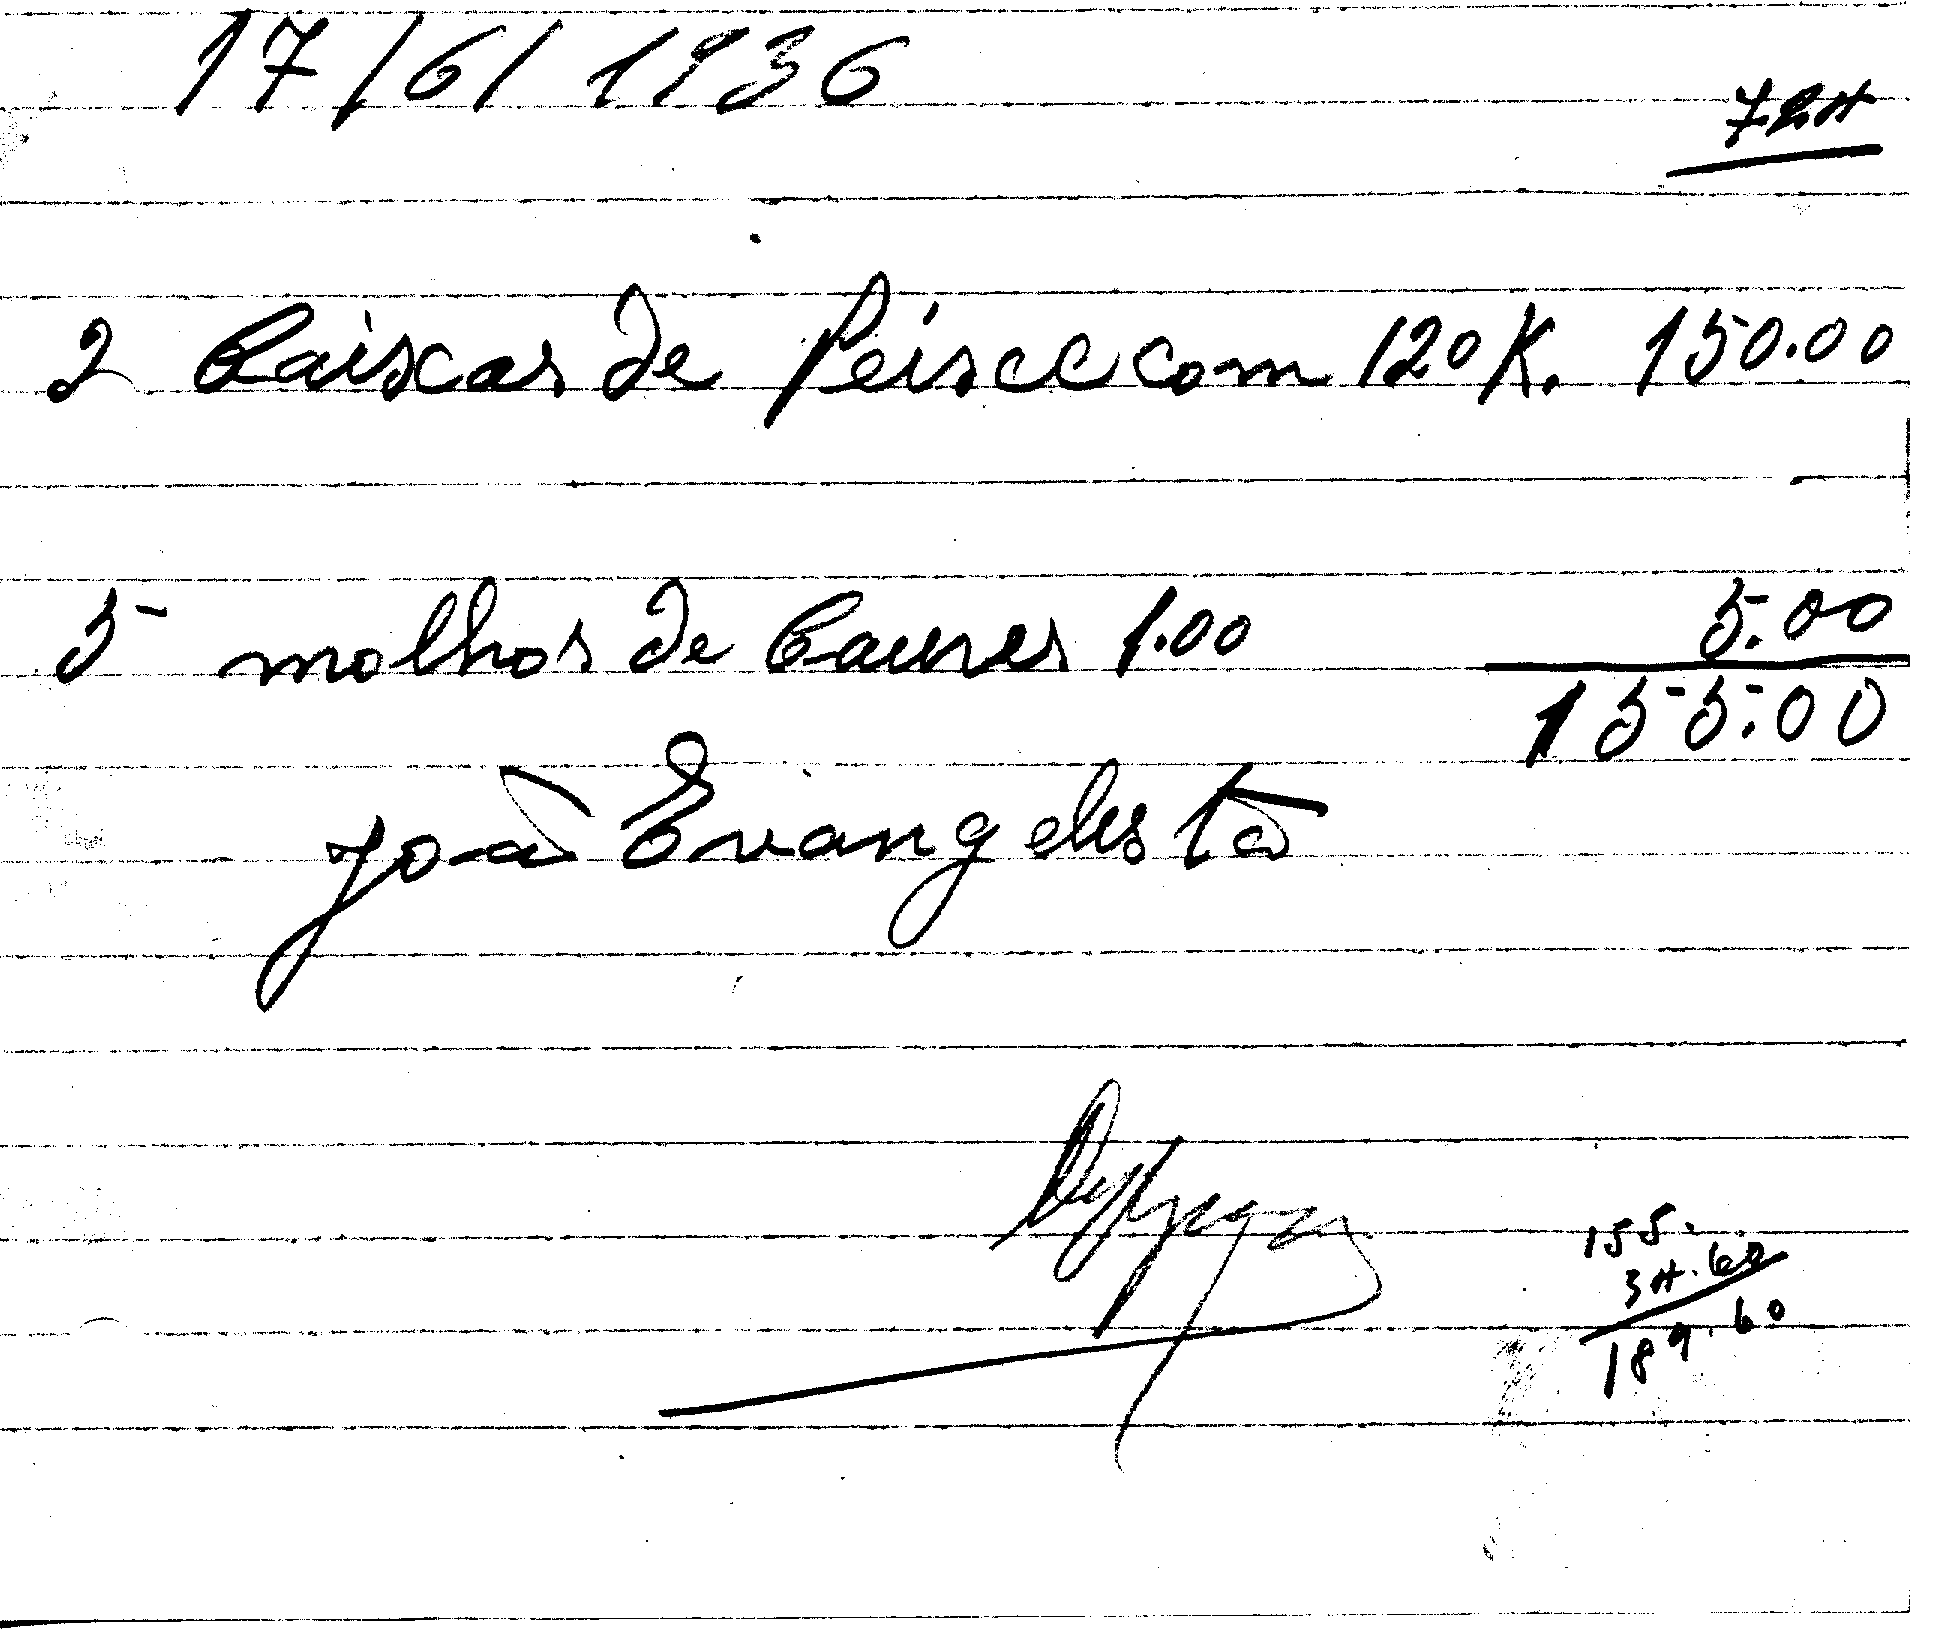 17/6/1936
724
2 Caiscas de Peisce com 120 K. 150.00
5 molhos de Caunes 1.00 5.00
155.00
João Evangelista
155.
34.60
189.60